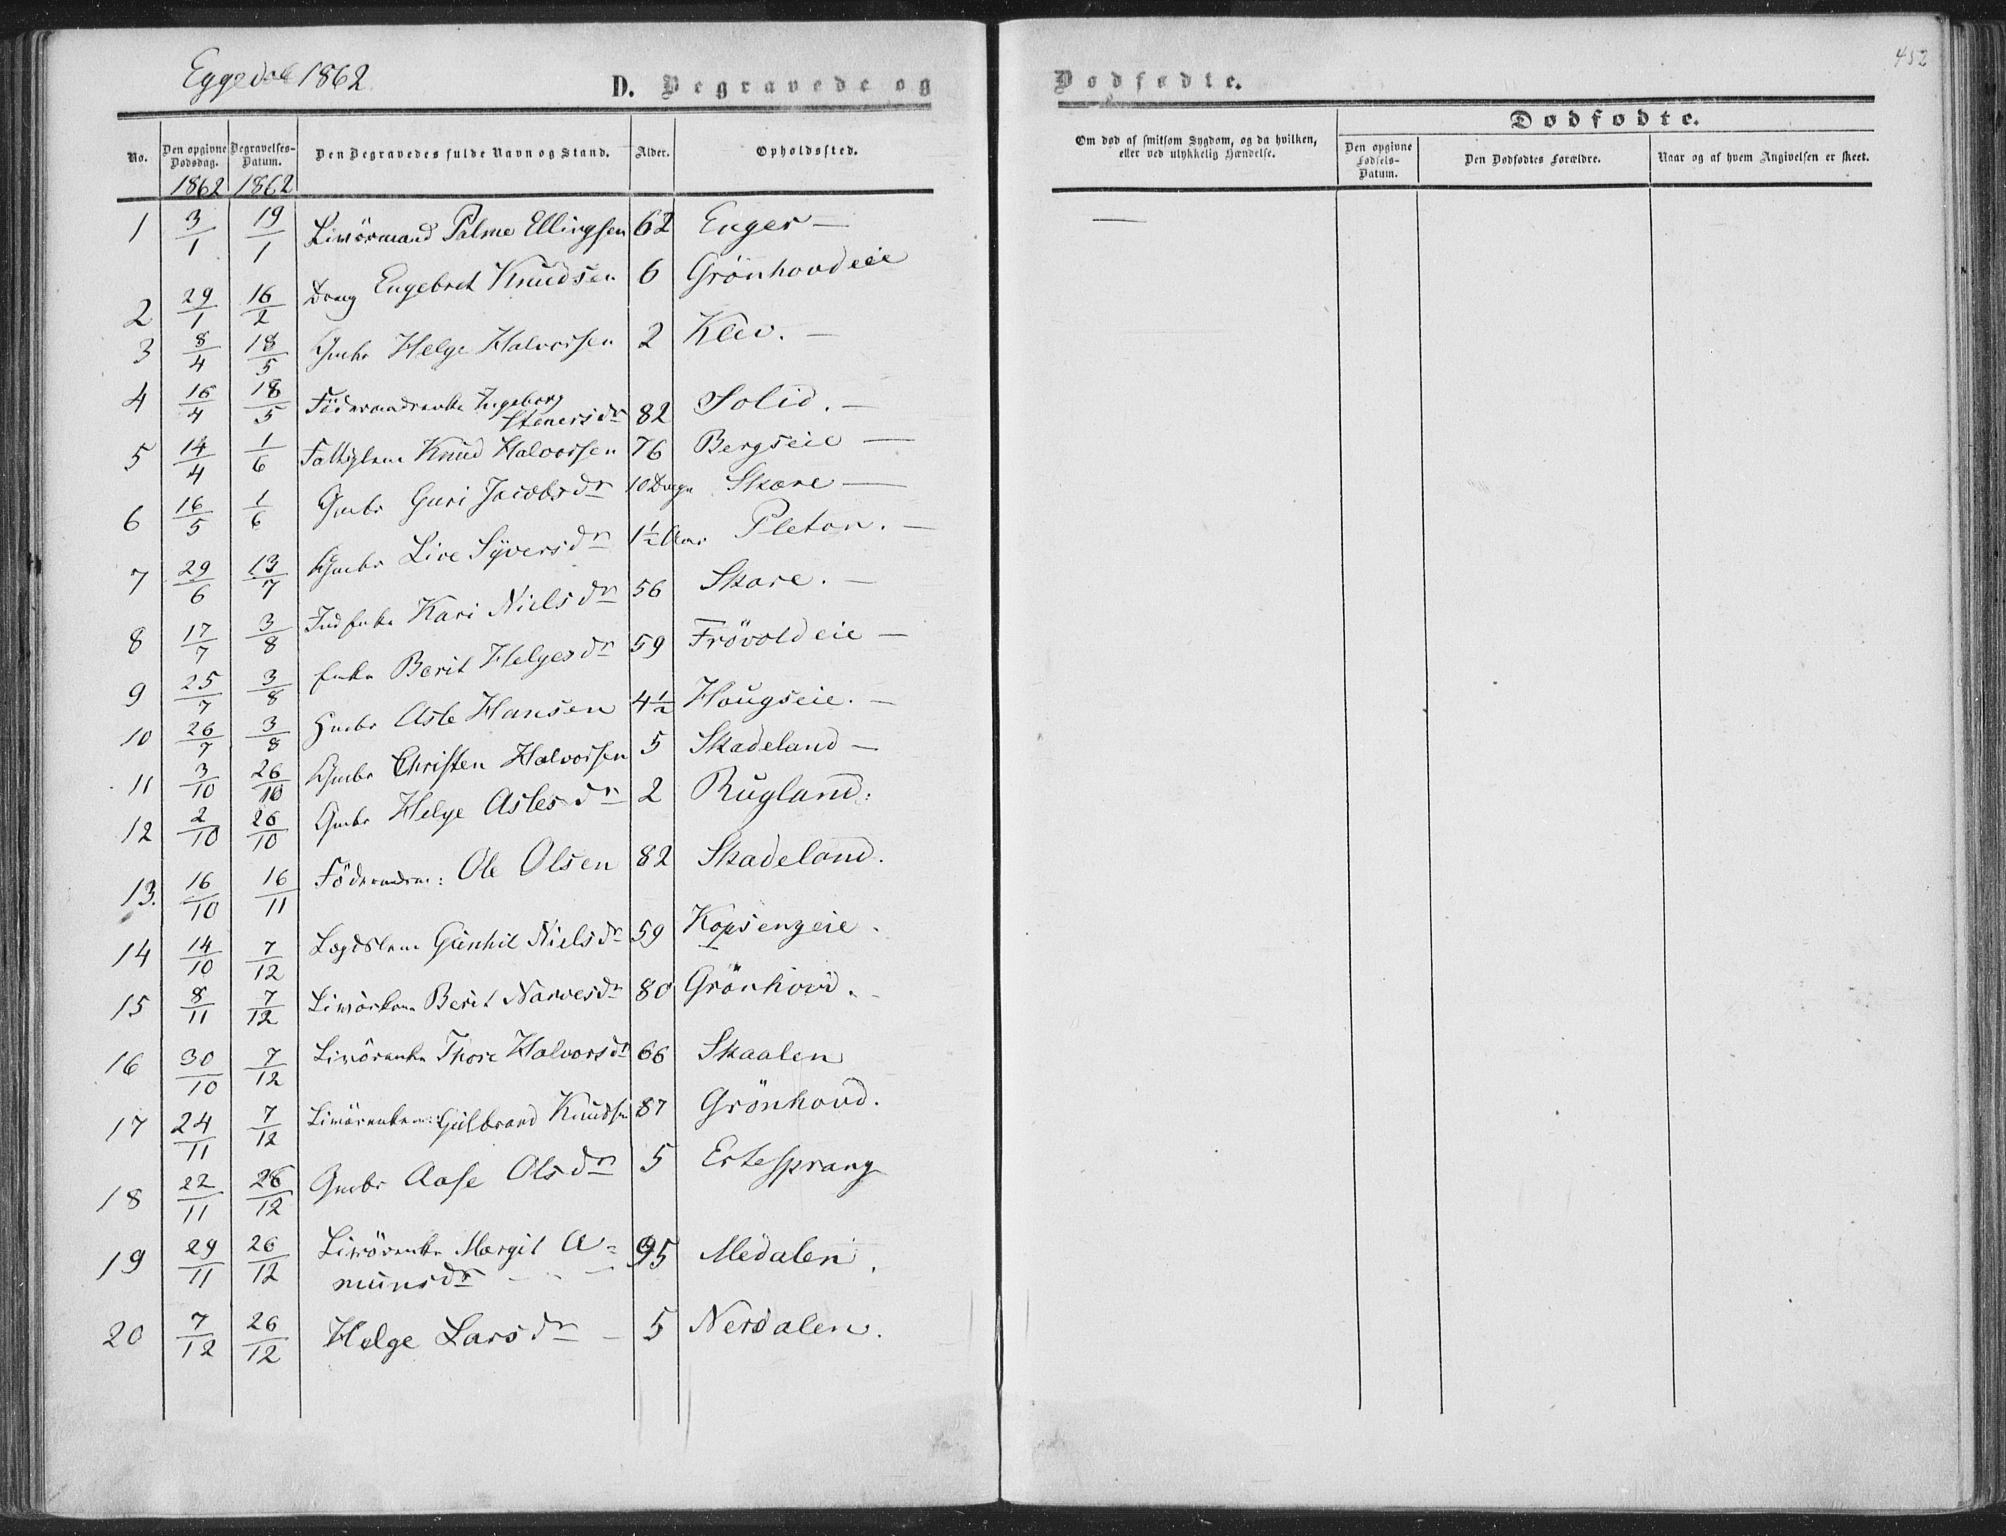 Eggedal 1862
D. Begravede og
No. | Den opgivne Dødsdag. | Begravelses-Datum. | Den Begravedes fulde Navn og Stand. | Alder. | Opholdssted.
1862 | 1862
1 | 3/1 | 19/1 | Livörmand Palme Ellingsen | 62 | Enger —
2 | 29/1 | 16/2 | Dreng Engebret Knudsen | 6 | Grönhovdeie
3 | 8/4 | 18/5 | Gmbr Helge Halvorsen | 2 | Klev. —
4 | 16/4 | 18/5 | Föderaadsenke Ingeborg
Stenersdr | 82 | Solid. —
5 | 14/4 | 1/6 | Fattiglem Knud Halvorsen | 76 | Bergseie —
6 | 16/5 | 1/6 | Gmbr Guri Jacobsdr | 10 Dage | Skare —
7 | 29/6 | 13/7 | Gmbr Live Syversdr | 1½ Aar | Pleton. —
8 | 17/7 | 3/8 | Kari Nielsdr | 56 | Skare. —
9 | 25/7 | 3/8 | Berit Helgesdr | 59 | Frövoldeie —
10 | 26/7 | 3/8 | Gmbr Asle Hansen | 4½ | Hougseie. —
11 | 3/10 | 26/10 | Gmbr Christen Halvorsen | 5 | Skadeland —
12 | 2/10 | 26/10 | Gmbr Helge Aslesdr | 2 | Rugland:
13. | 16/10 | 16/11 | Föderaadsm: Ole Olsen | 82 | Skadeland.
14 | 14/10 | 7/12 | Lægdslem Gunhil Nielsdr | 59 | Kopsengeie.
15 | 8/11 | 7/12 | Livörkone Berit Narvesdr | 80 | Grönhovd. -
16 | 30/10 | 7/12 | Livörenke Thore Halvorsdr | 66 | Skaalen
17 | 24/11 | 7/12 | Livörenkem: Gulbrand Knudsen | 87 | Grönhovd.
18 | 22/11 | 26/12 | Gmbr Aase Olsdr | 5 | Ertesprang
19 | 29/11 | 26/12 | Livörenke Margit A=
munsdr | 95 | Medalen.
20 | 7/12 | 26/12 | Helge Larsdr — | 5 | Nerdalen.
452
Dødfødte.
Om død af smitsom Sygdom, og da hvilken, eller ved ulykkelig Hændelse. | Dødfødte.
Den opgivne Fødsels-Datum. | Den Dødfødtes Forældre. | Naar og af hvem Angivelsen er skeet.
—